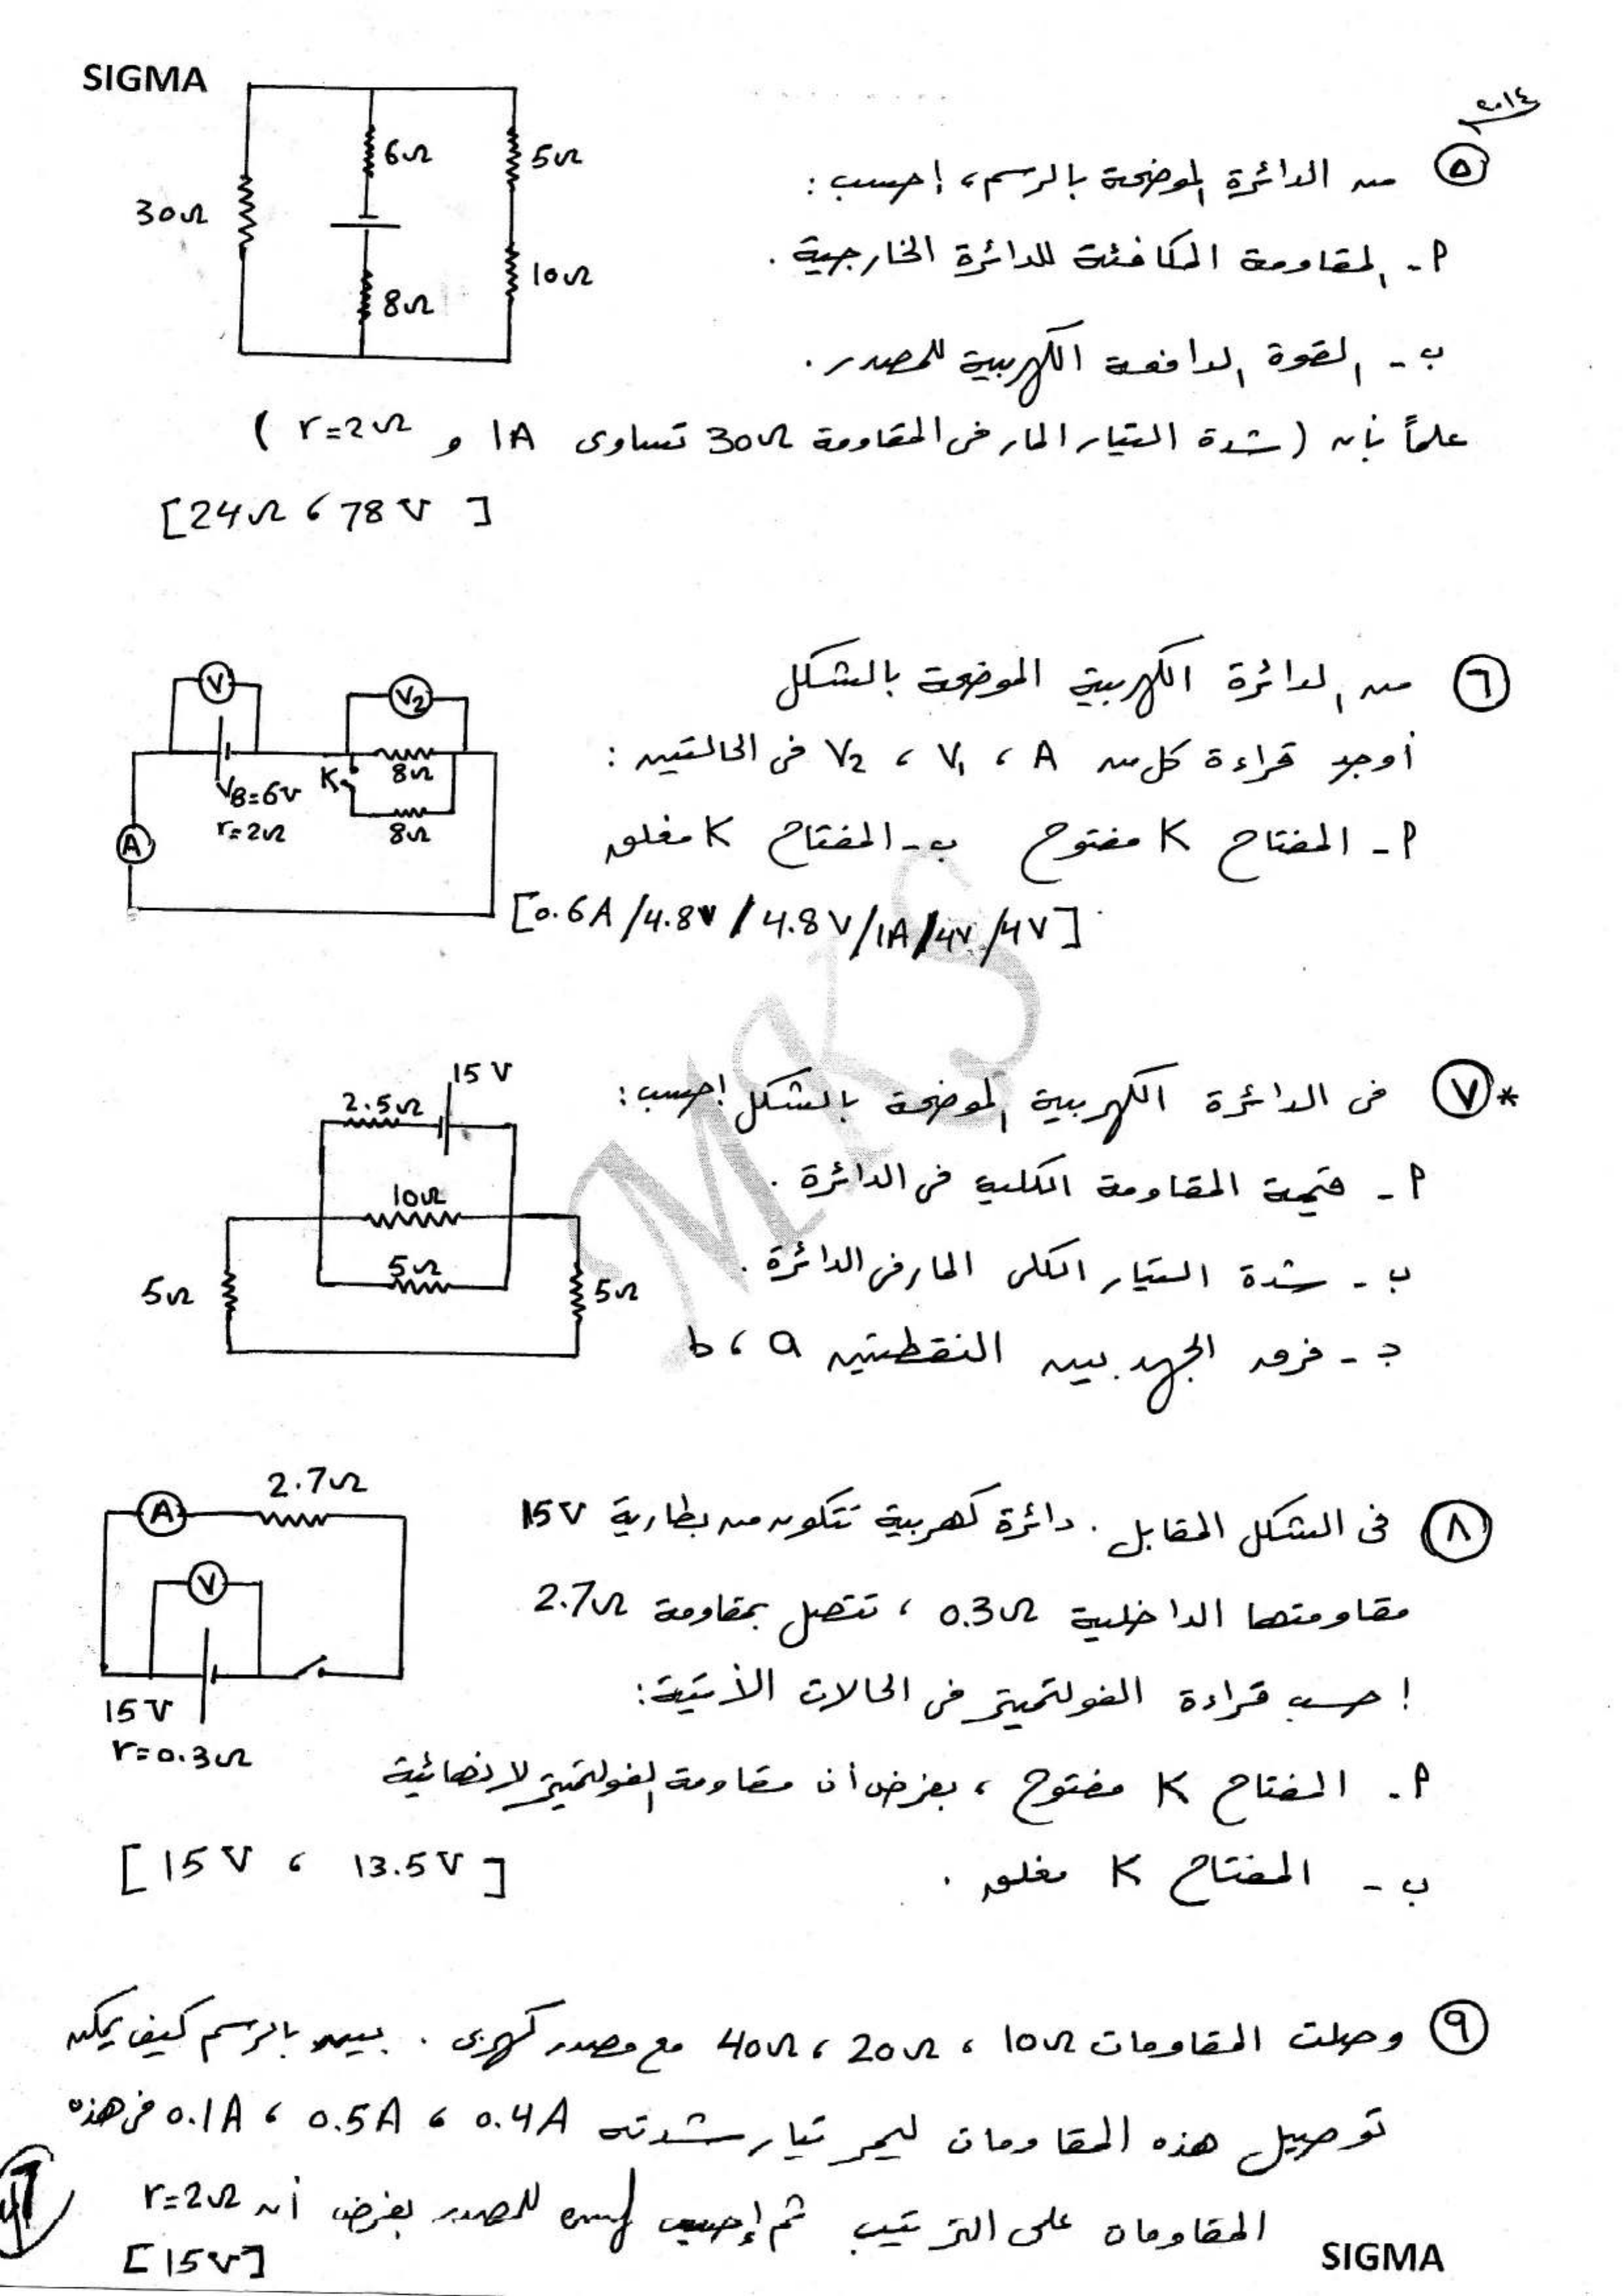 SIGMA
٢٠١٤
٥ من الدائرة الموضحة بالرسم، إحسب :
30Ω
6Ω
8Ω
5Ω
10Ω
أ- المقاومة المكافئة للدائرة الخارجية .
ب- القوة الدافعة الكهربية للمصدر .
علماً بأن ( شدة التيار المار فى المقاومة 30Ω تساوى 1A و r=2Ω )
[24Ω ، 78V]
٦ من الدائرة الكهربية الموضحة بالشكل
أوجد قراءة كل من A ، V₁ ، V₂ فى الحالتين :
أ- المفتاح K مفتوح ب- المفتاح K مغلق
V
V2
VB=6V
r=2Ω
K
8Ω
8Ω
A
[0.6A/4.8V/4.8V/1A/4V/4V]
MKS
*٧ فى الدائرة الكهربية الموضحة بالشكل إحسب :
15V
2.5Ω
10Ω
5Ω
5Ω
5Ω
أ- قيمة المقاومة الكلية فى الدائرة .
ب- شدة التيار الكلى المار فى الدائرة .
ج- فرق الجهد بين النقطتين a ، b
٨ فى الشكل المقابل . دائرة كهربية تتكون من بطارية 15V
مقاومتها الداخلية 0.3Ω ، تتصل بمقاومة 2.7Ω
إحسب قراءة الفولتميتر فى الحالات الأتية :
2.7Ω
A
V
15V
r=0.3Ω
أ. المفتاح K مفتوح ، بفرض أن مقاومة الفولتميتر لانهائية
ب- المفتاح K مغلق .
[15V ، 13.5V]
٩ وصلت المقاومات 10Ω ، 20Ω ، 40Ω مع مصدر كهربى . بين بالرسم كيف يمكن
توصيل هذه المقاومات ليمر تيار شدته 0.4A ، 0.5A ، 0.1A فى هذه
المقاومات على الترتيب ثم إحسب emf للمصدر بفرض أن r=2Ω
[15V]
SIGMA